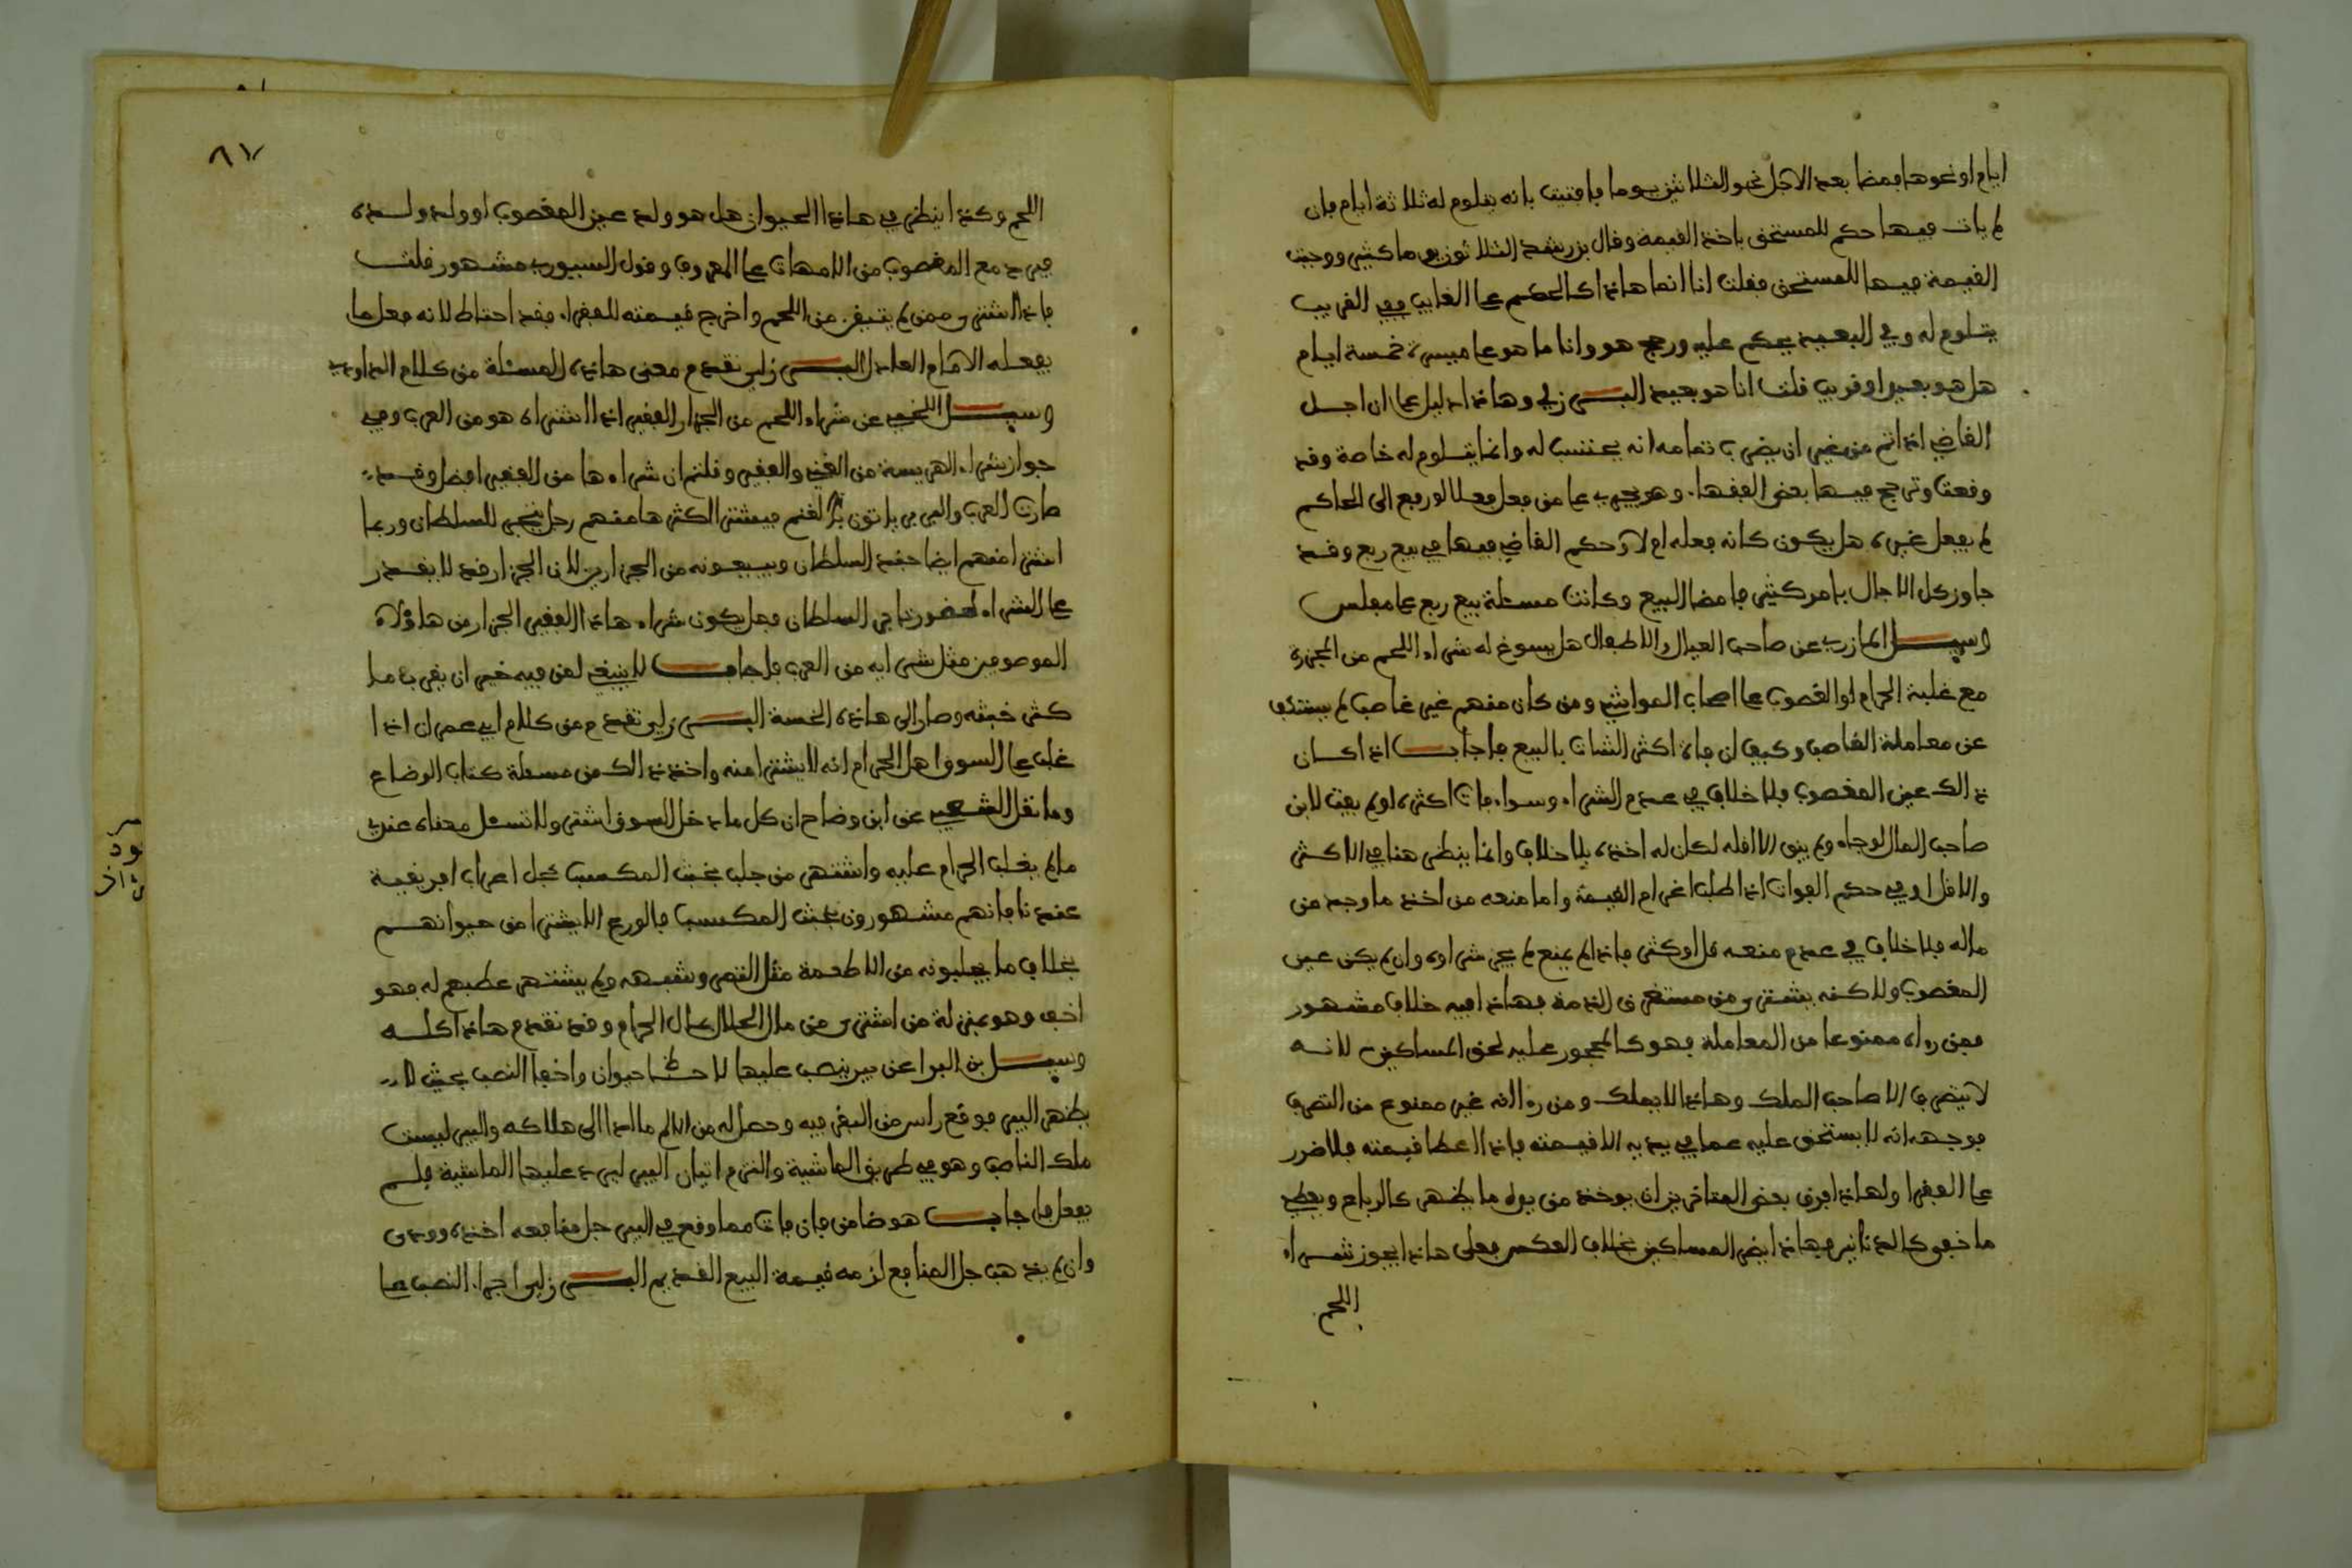 ايام او نحوها فمضا بعد الاجل نحو الثلاثين يوما فافتيت بانه يتلوم له ثلاثة ايام فان
لم يات فيها حكم للمستحق باخذ القيمة وقال بن رشد الثلاثون يوما كثير ووجبت
القيمة فيها للمستحق فقلت انا انما هاذا كالحكم على الغايب ففي القريب
يتلوم له وفي البعيد يحكم عليه ورجح هو وانا ما هو على مسيرة خمسة ايام
هل هو بعيد او قريب قلت انا هو بعيد البـــرزلي وهاذا دليل على ان اجل
القاضي اذا تم من غير ان يضرب تمامه انه يحتسب له وانما يتلوم له خاصة وقد
وقعت وترجح فيها بعض الفقهاء وهو يجري على من فعل فعلا لو رفع الى الحاكم
لم يفعل غيره هل يكون كانه فعله ام لا وحكم القاضي فيها في بيع ربع وقد
جاوز كل الاجال بامر كثير فامضا البيع وكانت مسئلة بيع ربع على مفلس
وسيـــل المازري عن صاحب العيال والاطفال هل يسوغ له شراء اللحم من المجزرة
مع غلبة الحرام او الغصوب على اصحاب المواشي ومن كان منهم غير غاصب لم يستنكف
عن معاملة الغاصب وكيف ان فاة اكثر الشات بالبيع فاجابـــ اذا كان
ذالك عين المغصوب فلا خلاف في عدم الشراء وسواء فات اكثره او لم يفت لان
صاحب المال لو جاء ولم يبق الا اقله لكان له اخذه بلا خلاف وانما ينظر هنا في الاكثر
والاقل او في حكم الفوات اذا طلب اغرام القيمة واما منعه من اخذ ما وجد من
ماله فلا خلاف في عدم منعه قل او كثر فاذا لم يمنع لم يجز شراوه وان لم يكن عين
المغصوب ولاكنه يشتري من مستغرق الذمة فهاذا فيه خلاف مشهور
فمن رءاه ممنوعا من المعاملة فهو كالمحجور عليه لحق المساكين لانه
لا يتصرف الا صاحب الملك وهاذا لا يملك ومن رءا انه غير ممنوع من التصرف
فوجهه انه لا يستحق عليه عما في يديه الا قيمته فاذا اعطا قيمته فلا ضرر
على الفقرا ولهاذا فرق بعض المتاخرين ان يوخذ من يده ما يظهر كالرباع ويعطي
ما خفي كالدنانير فهاذا يضر المساكين بخلاف العكس فعلى هاذا يجوز شراء
اللحم
٨٧
اللحم وكذا ينظر في هاذا الحيوان هل هو ولد عين المغصوب او ولد ولده
فيرد مع المغصوب من الامهات على المعروف وقول السيوري مشهور قلت
فاذا اشترى ممن لم يتيقن من اللحم واخرج قيمته للفقراء فقد احتاط لانه فعل ما
يفعله الامام العادل البـــرزلي تقدم معنى هاذه المسئلة من كلام الداودي
وسيـــل اللخمي عن شراء اللحم من الجزار الفقير اذا اشتراه هو من العرب وفي
جواز شراء الهريسة من الغني والفقير وقلتم ان شراءها من الفقير افضل وقد
صارت العرب والبربر ياتون بالغنم فيشتري اكثرها منهم رجل يتجر للسلطان وربما
اشترا منهم ايضا حفدة السلطان ويبيعونه من الجزارين لان الجزار قد لا يقدر
على الشراء لحضور تاجر السلطان فهل يكون شراء هاذا الفقير الجزار من هاؤلاء
الموصوفين مثل شرايه من العرب فاجابـــ لا ينبغي لمن فيه خير ان يقرب ما
كثر خبثه وصار الى هاذه الخسة البـــرزلي تقدم من كلام ابي عمران اذا
غلب على السوق اهل الحرام انه لا يشترا منه واخذ ذالك من مسئلة كتاب الرضاع
وما نقل الشعبي عن ابن وضاح ان كل ما دخل السوق اشتر ولا تسئل معناه عندي
ما لم يغلب الحرام عليه واشتهر من جلب بخبث المكسب كجل اعراب افريقية
عندنا فانهم مشهورون بخبث المكسب فالورع الا يشترا من حيوانهم
بخلاف ما يجلبونه من الاطعمة مثل التمر وشبهه ولم يشتهر غصبهم له فهو
اخف وهو بمنزلة من اشترى من مال الحلال كمال الحرام وقد تقدم هاذا كله
وسيـــل بن البرا عن بير ينصب عليها لاحـــظـــا حيوان واخفا النصب بحيث لا
يظهر البير فوقع راس من البقر فيه وحصل له من الالم ما ادا الى هلاكه والبير ليست
ملك الناصب وهو في طريق الماشية والتزم اتيان البير ليرد عليها الماشية فلم
يفعل فاجابـــ هو ضامن فان فات مما وقع في البير جل منافعه اخذه وودى
وان لم يذهب جل المنافع لزمه قيمة البيع القديم البـــرزلي اجراء النصب على